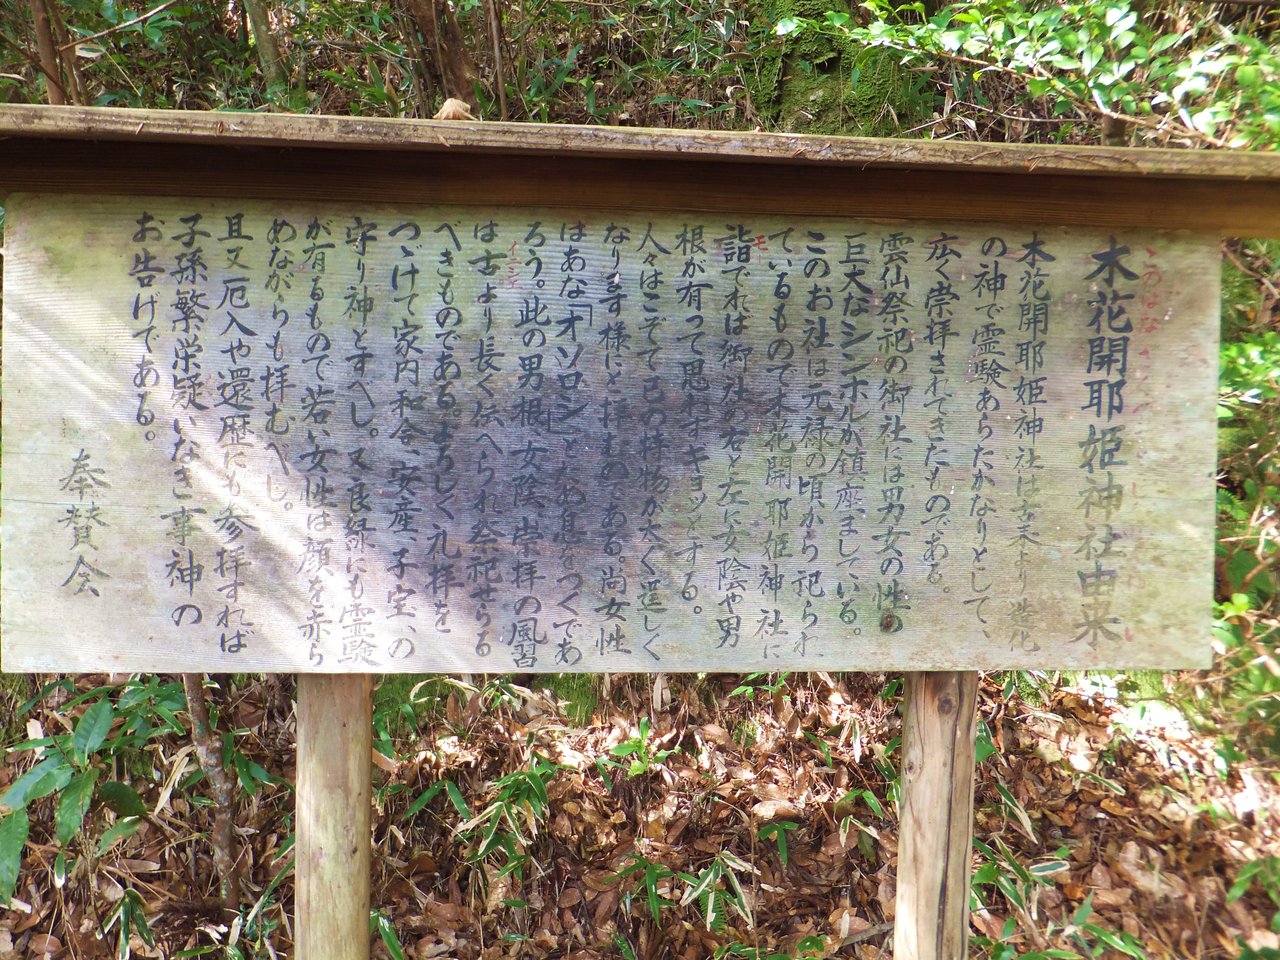 木花開耶姫神社由来
木花開耶姫神社は古来より造化
の神で霊験あらたかなりとして、
広く崇拝されてきたものである。
雲仙祭祀の御社には男女の性の
巨大なシンボルが鎮座ましている。
このお社は元禄の頃から祀られ
ているもので木花開耶姫神社に
詣でれば御社の右と左に女陰や男
モー
根が有って思わずギョッとする。
人々はこぞって己の持物が太く逞しく
なります様にと拝むのである。尚女性
はあな「オソロシ」とため息をつくであ
ろう。此の男根、女陰、崇拝の風習
は古より長く伝へられ祭祀せらる
イニシエ
べきものである。よろしく礼拝を
つゞけて家内和合、安産、子宝、の
守り神とすべし。又良縁にも霊験
が有るもので若い女性は顔を赤ら
めながらも拝むべし。
且又厄入や還歴にも参拝すれば
子孫繁栄疑いなき事神の
お告げである。
奉賛会